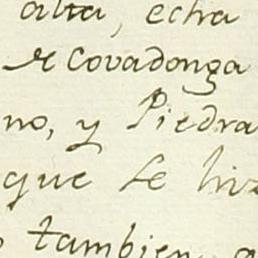 alta, echa
de Covadonga
no, y Piedra
que se hiz
tambien